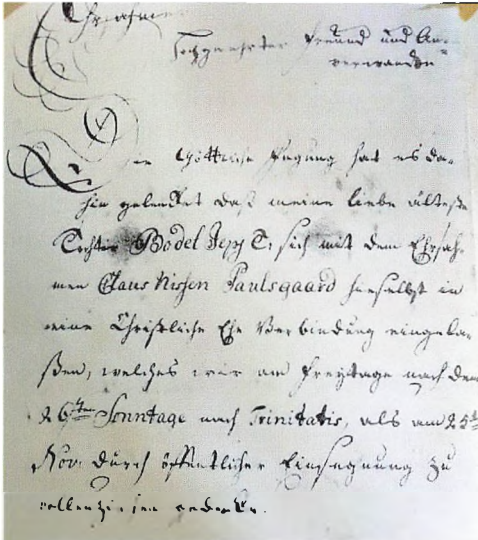 Ehrsahmer
Hochgeehrter Freund und An-
verwandter
Die Göttliche Fügung hat es da-
hin gelencket daß meine liebe älteste
Tochter Bodel Jepp T: sich mit dem Ehrsah-
men Claus Nissen Paulsgaard hieselbst in
eine Christliche Ehe Verbindung eingela-
ßen, welches wir am Freytage nach dem
26ten Sonntage nach Trinitatis, als am 25ten
Nov: durch öffentlicher Einsegnung zu
vollenziehen gedencken.